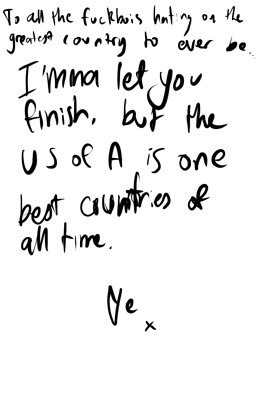 To all the fuckbois hating on the
greatest country to ever be..
I'mna let you
finish, but the
US of A is one
best countries of
all time.
Ye
x